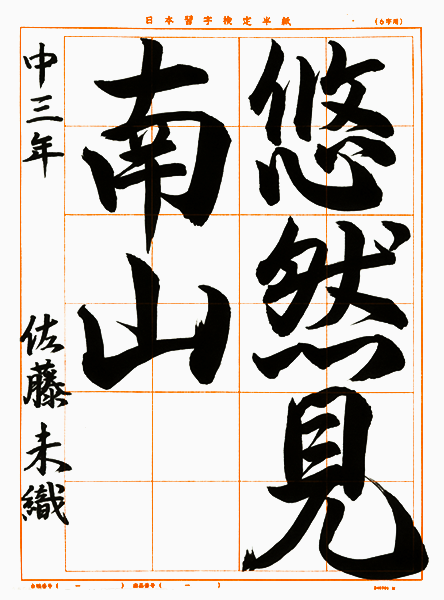 日本習字検定半紙
（6字用）
悠然見
南山
中三年 佐藤未織